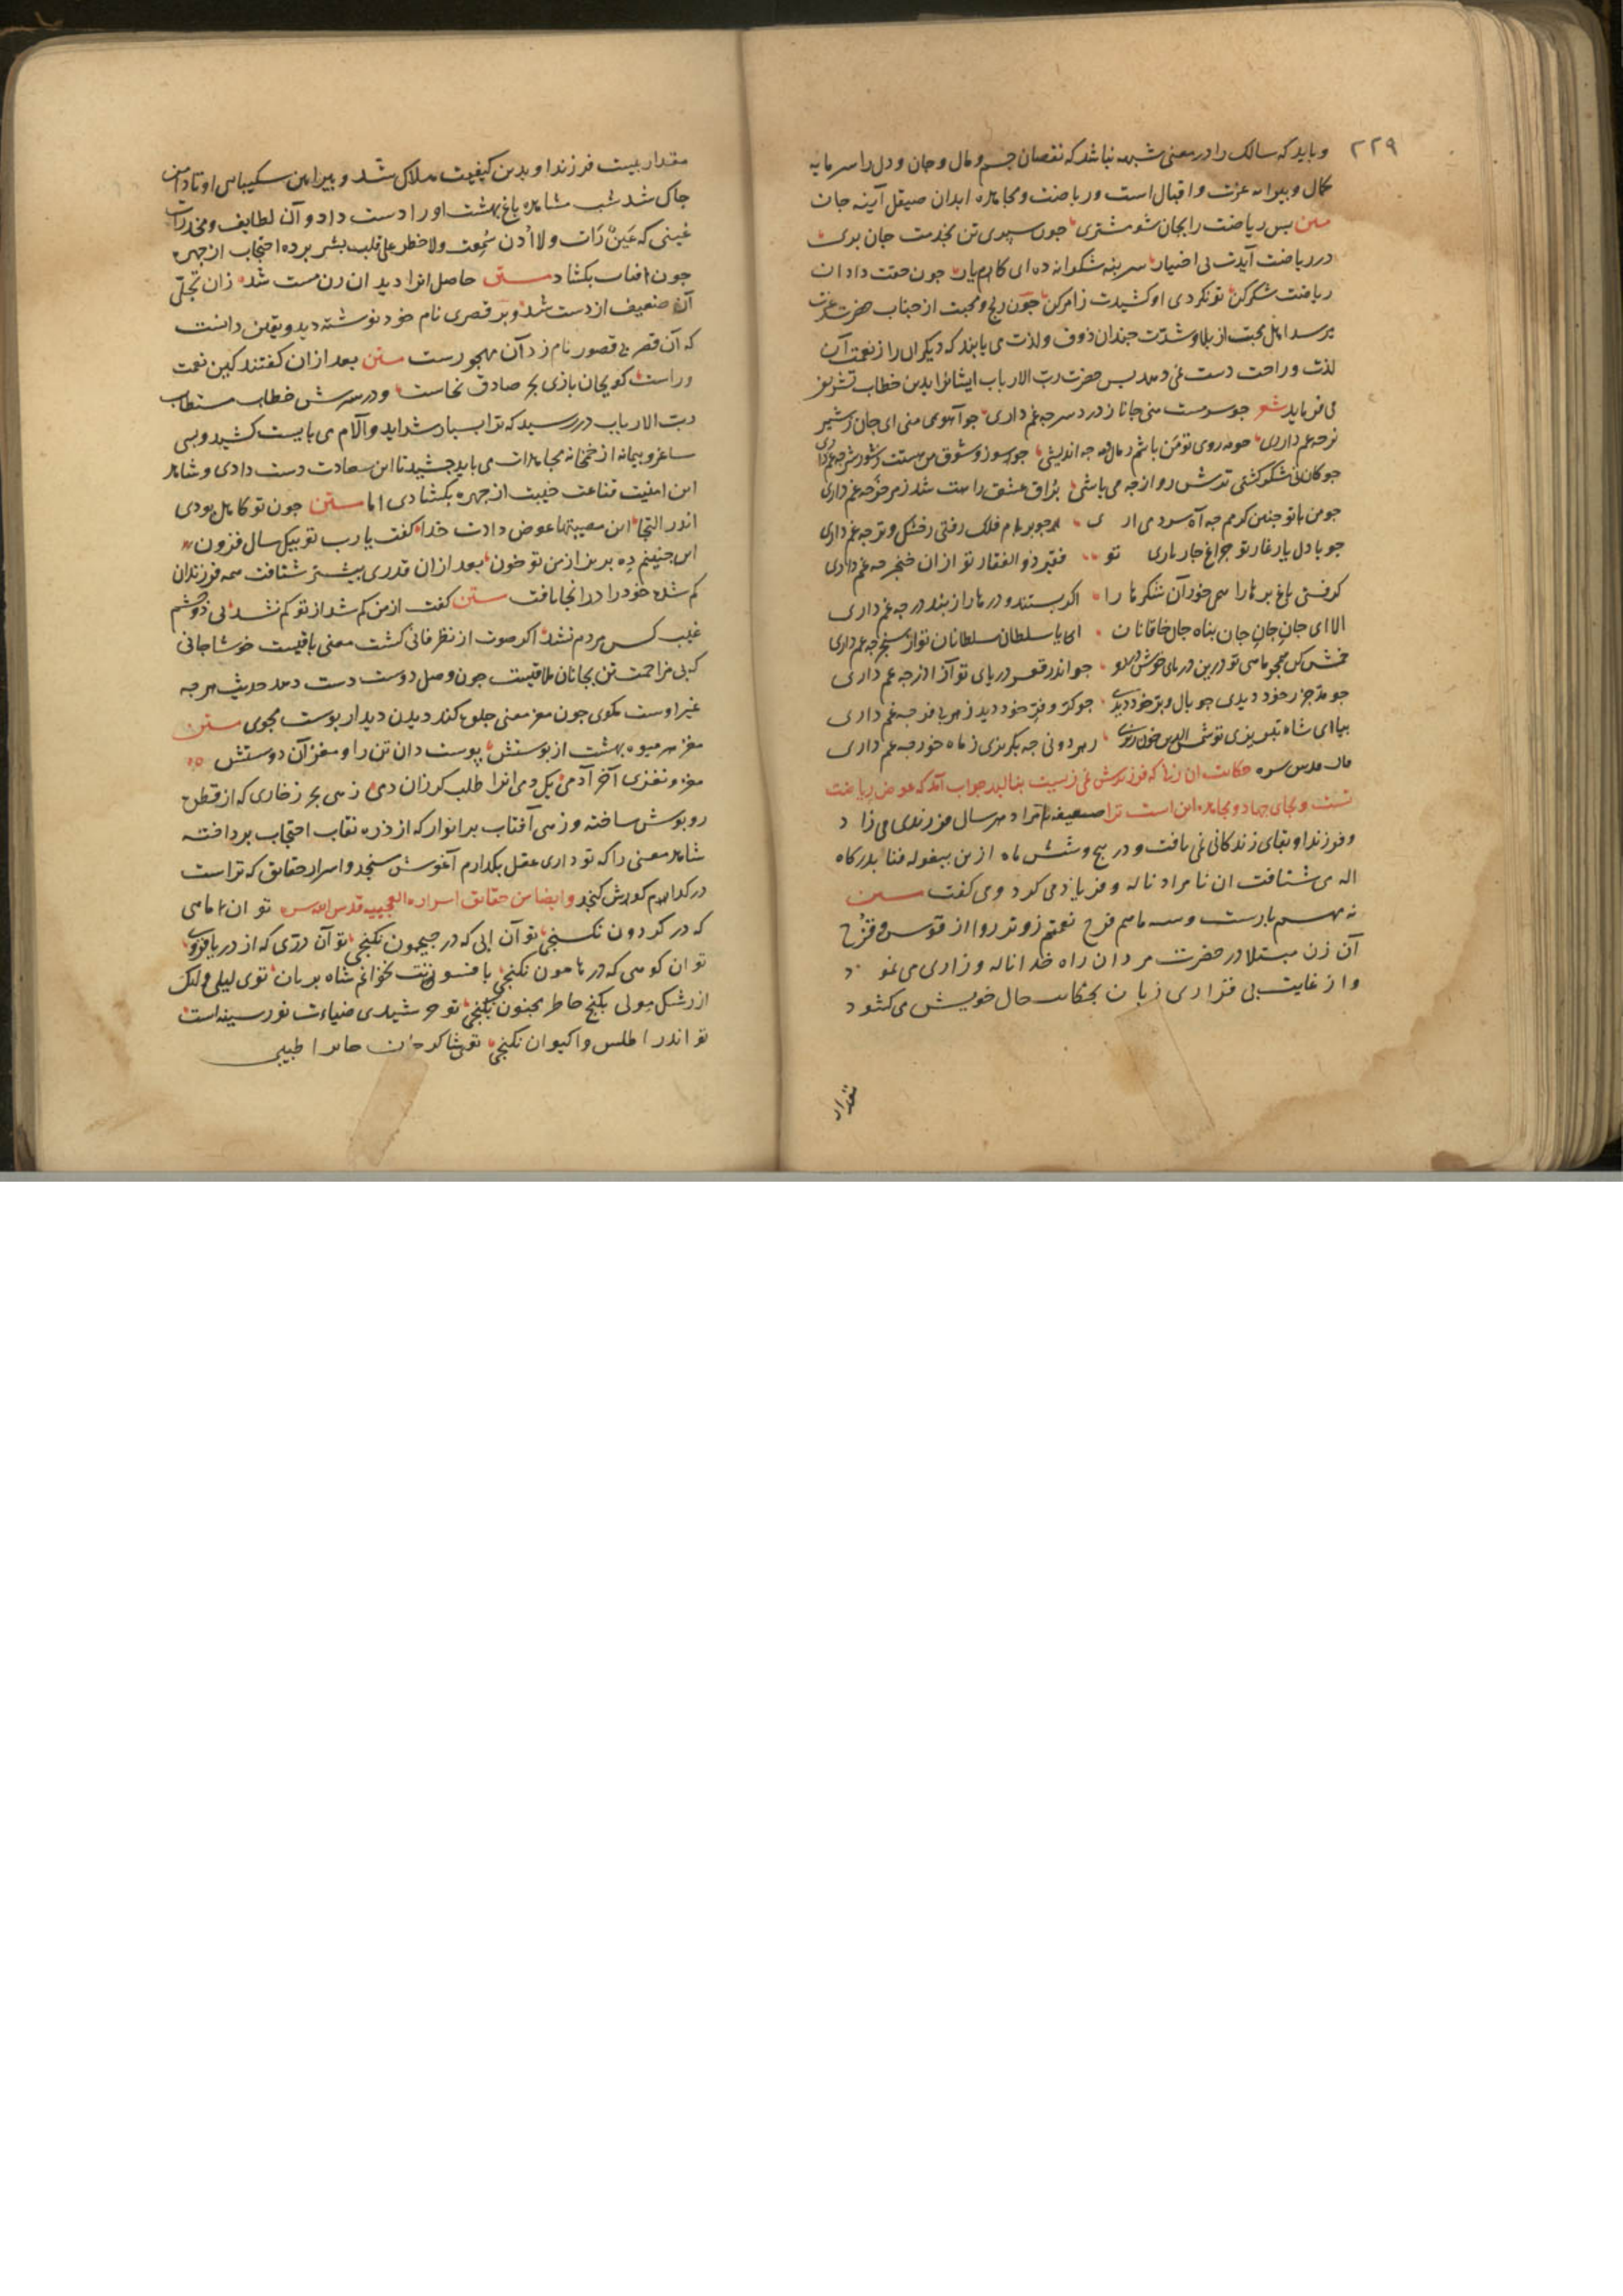 ۲۲۹
و باید که سالک را درین معنی شبهه نباشد که نقصان جسم و مال و جان و دل را سرمایه
کمال و پیرایه عزت و اقبال است و ریاضت و مجاهده ابدان صیقل آینه جان
متن پس ریاضت را بجان شو مشتری جون سپردی تن بخدمت جان بری
در ریاضت آیدت بی اختیار سر بنه شکرانه ده ای کامیار جون حقت داد ان
ریاضت شکر کن تو نکردی او کشیدت زامر کن جون رنج و محبت از جناب حضرت عزت
برسد اهل محبت از بلا و شدت جندان ذوق و لذت می یابند که دیکران را از نعمت آن
لذت و راحت دست نمی دهد پس حضرت رب الارباب ایشانرا بدین خطاب تشریف
می فرماید شعر جو سرمست منی جانا ز درد سر جه غم داری جو آهوی منی ای جان ز شیر
نر جه غم داری جو مه روی تو من باشم ز سال و مه جه اندیشی جو شور و شوق من هستت ز شور و شر جه غم داری
جو کان نی شکر کشتی ترش رو از جه می باشی براق عشق رامت شد ز مرک خر جه غم داری
جو من با تو جنین کرمم جه آه سرد می اری جو بر بام فلک رفتی ز خشک و تر جه غم داری
جو با دل یار غاری تو جراغ جار یاری تو فقیر ذو الفقاری تو ازان خنجر جه غم داری
کرفتی باغ و برها را همی خور آن شکرها را اکر بستند درها را ز بند در جه غم داری
الا ای جان جان جان پناه جان خاقانان ای یا سلطان سلطانان تو از سنجر جه غم داری
خمش کن همجو ماهی تو درین دریای خوش در رو جو اندر قعر دریای تو از آذر جه غم داری
جو مد و جزر خود دیدی جو بال و پر خود دیدی جو کر و فر خود دیدی ز هر بی فر جه غم داری
بیا ای شاه تبریزی تو شمس الدین خون ریزی
قال قدس سره حکایت ان زنی که فرزندش نمی زیست بنالید جواب آمد که عوض ریاضت
تست و بجای جهاد و مجاهده این است ترا ضعیفه نامراد هر سال فرزندی می زاد
و فرزند او بقای زندکانی نمی یافت و در پنج و شش ماه ازین بیغوله فنا بدرکاه
اله می شتافت ان نامراد ناله و فریاد می کرد و می کفت متن
نه مهم بارست و سه ماهم فرح نعمتم زوتر رو از قوس قزح
آن زن مبتلا در حضرت مردان راه خدا ناله و زاری می نمود
و از غایت بی قراری زبان بحکایت حال خویش می کشود
مقدار
مقدار بیست فرزند او بدین کیفیت هلاک شد و پیراهن سکیبایی او تا دامن
جاک شد شب مشاهده باغ بهشت اورا دست داد و آن لطایف و مخدرات
غیبی که عین رات ولا اذن سمعت ولا خطر علی قلب بشر پرده احتجاب از جهره
جون افتاب بکشاد متن حاصل انرا دید ان زن مست شد زان تجلی
آن ضعیف از دست شد و بر قصری نام خود نوشته دید و یقین دانست
که آن قصر بی قصور نام زد آن مهجورست متن بعد ازان کفتند کین نعمت
وراست کو بجان بازی بجز صادق نخاست و در سرش خطاب مستطاب
رب الارباب در رسید که ترا بسیار شداید و آلام می بایست کشید و بسی
ساغر و پیمانه از خمخانه مجاهدات می باید جشید تا این سعادت دست دادی و شاهد
این امنیت قناعت خیبت از جهره بکشادی اما متن جون تو کاهل بودی
اندر التجا این مصیبتها عوض دادت خدا کفت یا رب تو بیکی سال فزون
این جنینم ده بریز از من تو خون بعد ازان قدری پیشتر شتافت همه فرزندان
کم شده خود را در انجا یافت متن کفت از من کم شد از تو کم نشد بی دو جشم
غیب کس مردم نشد اکر صوت از نظر فانی کشت معنی باقیست خوشا جانی
که بی مزاحمت تن بجانان ملاقیست جون وصل دوست دست دهد حدیث هر جه
غیر اوست مکوی جون مغز معنی جلوه کند دیدن دیدار پوست مجوی متن
مغز هر میوه بهشت از پوستش پوست دان تن را و مغز آن دوستش
مغز و نغزی آخر آدمی یکدمی انرا طلب کر زان دمی زهی بحر زخاری که از قطره
روپوش ساخته و زهی آفتاب پر انوار که از ذره نقاب احتجاب پرداخته
شاهد معنی را که تو داری عقل بکدام آغوش سنجد و اسرار حقایق که تراست
در کدام کوش کنجد و ایضا من حقایق اسراره العجیبه قدس الله سره تو ان ماهی
که در کردون نکنجی تو آن ابی که در جیحون نکنجی تو آن دری که از دریا فزونی
تو ان کوهی که در هامون نکنجی بافسونت نخوانم شاه پریان توی لیلی ولیک
از رشک مولی بکنج خاطر مجنون نکنجی تو خورشیدی ضیاءت نور سینه است
تو اندر اطلس و اکسون نکنجی توی شاکرد جان افزا طبیبی